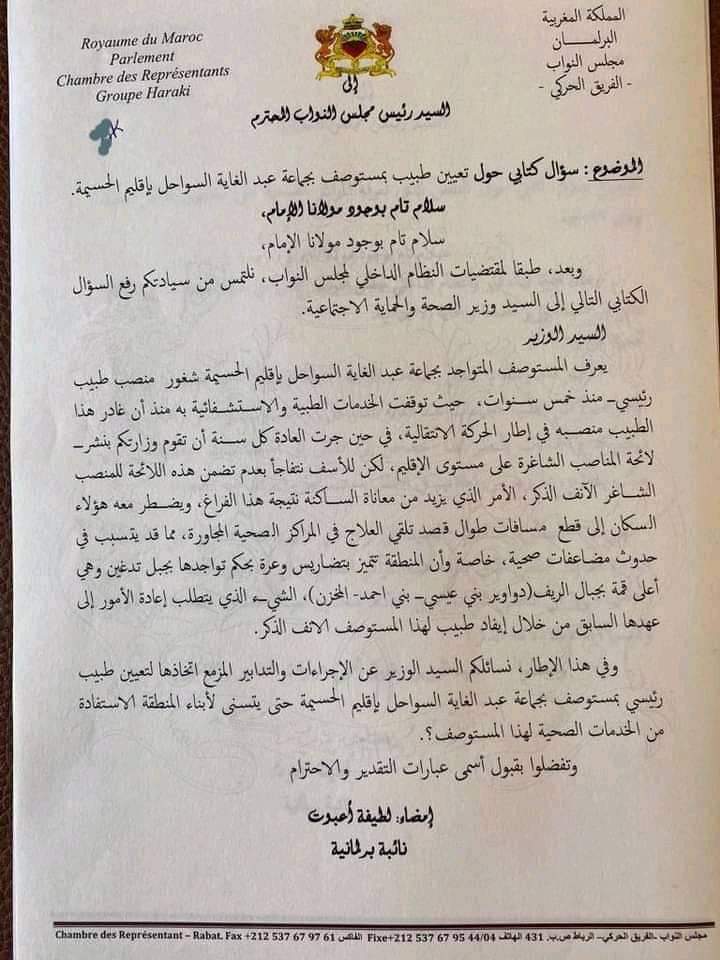 Royaume du Maroc
Parlement
Chambre des Représentants
Groupe Haraki
المملكة المغربية
البرلمـــــان
مجلس النواب
- الفريق الحركي -
إلى
السيد رئيس مجلس النواب المحترم
الموضوع : سؤال كتابي حول تعيين طبيب بمستوصف بجماعة عبد الغاية السواحل بإقليم الحسيمة.
سلام تام بوجود مولانا الإمام،
سلام تام بوجود مولانا الإمام،
وبعد، طبقا لمقتضيات النظام الداخلي لمجلس النواب، نلتمس من سيادتكم رفع السؤال
الكتابي التالي إلى السيد وزير الصحة والحماية الاجتماعية.
السيد الوزير
يعرف المستوصف المتواجد بجماعة عبد الغاية السواحل بإقليم الحسيمة شغور منصب طبيب
رئيسي منذ خمس سنوات، حيث توقفت الخدمات الطبية والاستشفائية به منذ أن غادر هذا
الطبيب منصبه في إطار الحركة الانتقالية، في حين جرت العادة كل سنة أن تقوم وزارتكم بنشر
لائحة المناصب الشاغرة على مستوى الإقليم، لكن للأسف نتفاجأ بعدم تضمن هذه اللائحة للمنصب
الشاغر الآنف الذكر، الأمر الذي يزيد من معاناة الساكنة نتيجة هذا الفراغ، ويضطر معه هؤلاء
السكان إلى قطع مسافات طوال قصد تلقي العلاج في المراكز الصحية المجاورة، مما قد يتسبب في
حدوث مضاعفات صحية، خاصة وأن المنطقة تتميز بتضاريس وعرة بحكم تواجدها بجبل تدغين وهي
أعلى قمة بجبال الريف(دواوير بني عيسي– بني احمد- المخزن)، الشيء الذي يتطلب إعادة الأمور إلى
عهدها السابق من خلال إيفاد طبيب لهذا المستوصف الانف الذكر.
وفي هذا الإطار، نسائلكم السيد الوزير عن الإجراءات والتدابير المزمع اتخاذها لتعيين طبيب
رئيسي بمستوصف بجماعة عبد الغاية السواحل بإقليم الحسيمة حتى يتسنى لأبناء المنطقة الاستفادة
من الخدمات الصحية لهذا المستوصف؟.
وتفضلوا بقبول أسمى عبارات التقدير والاحترام
إمضاء: لطيفة أعبوت
نائبة برلمانية
مجلس النواب -الفريق الحركي– الرباط ص.ب. 431 الهاتف Fixe+212 537 67 95 44/04 الفاكس Chambre des Représentant – Rabat. Fax +212 537 67 97 61